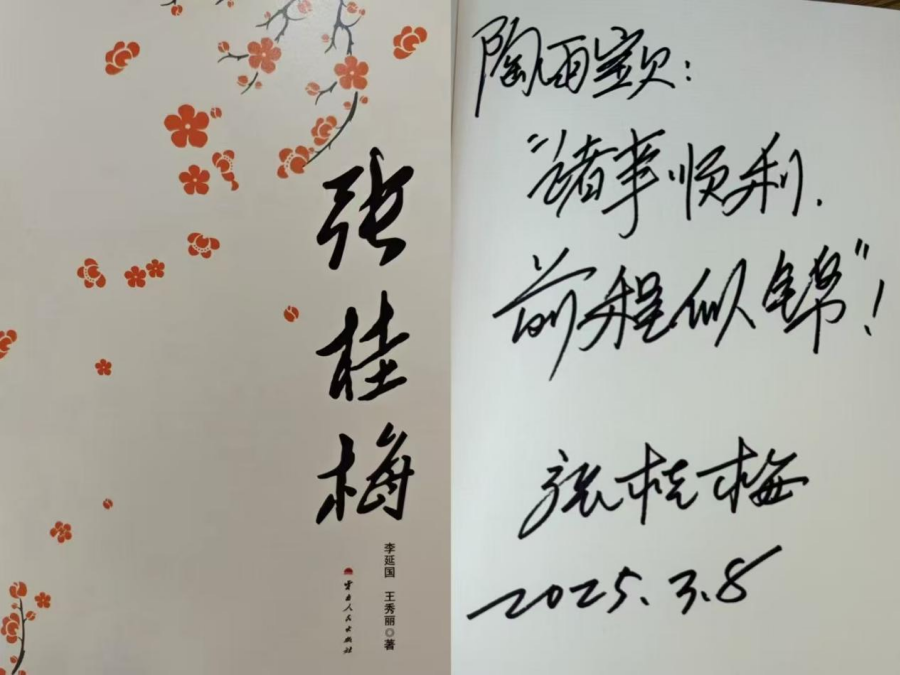 张桂梅
李延国 王秀丽◎著
云南人民出版社
陶雨宝贝：
“诸事顺利.
前程似锦”！
张桂梅
2025.3.8